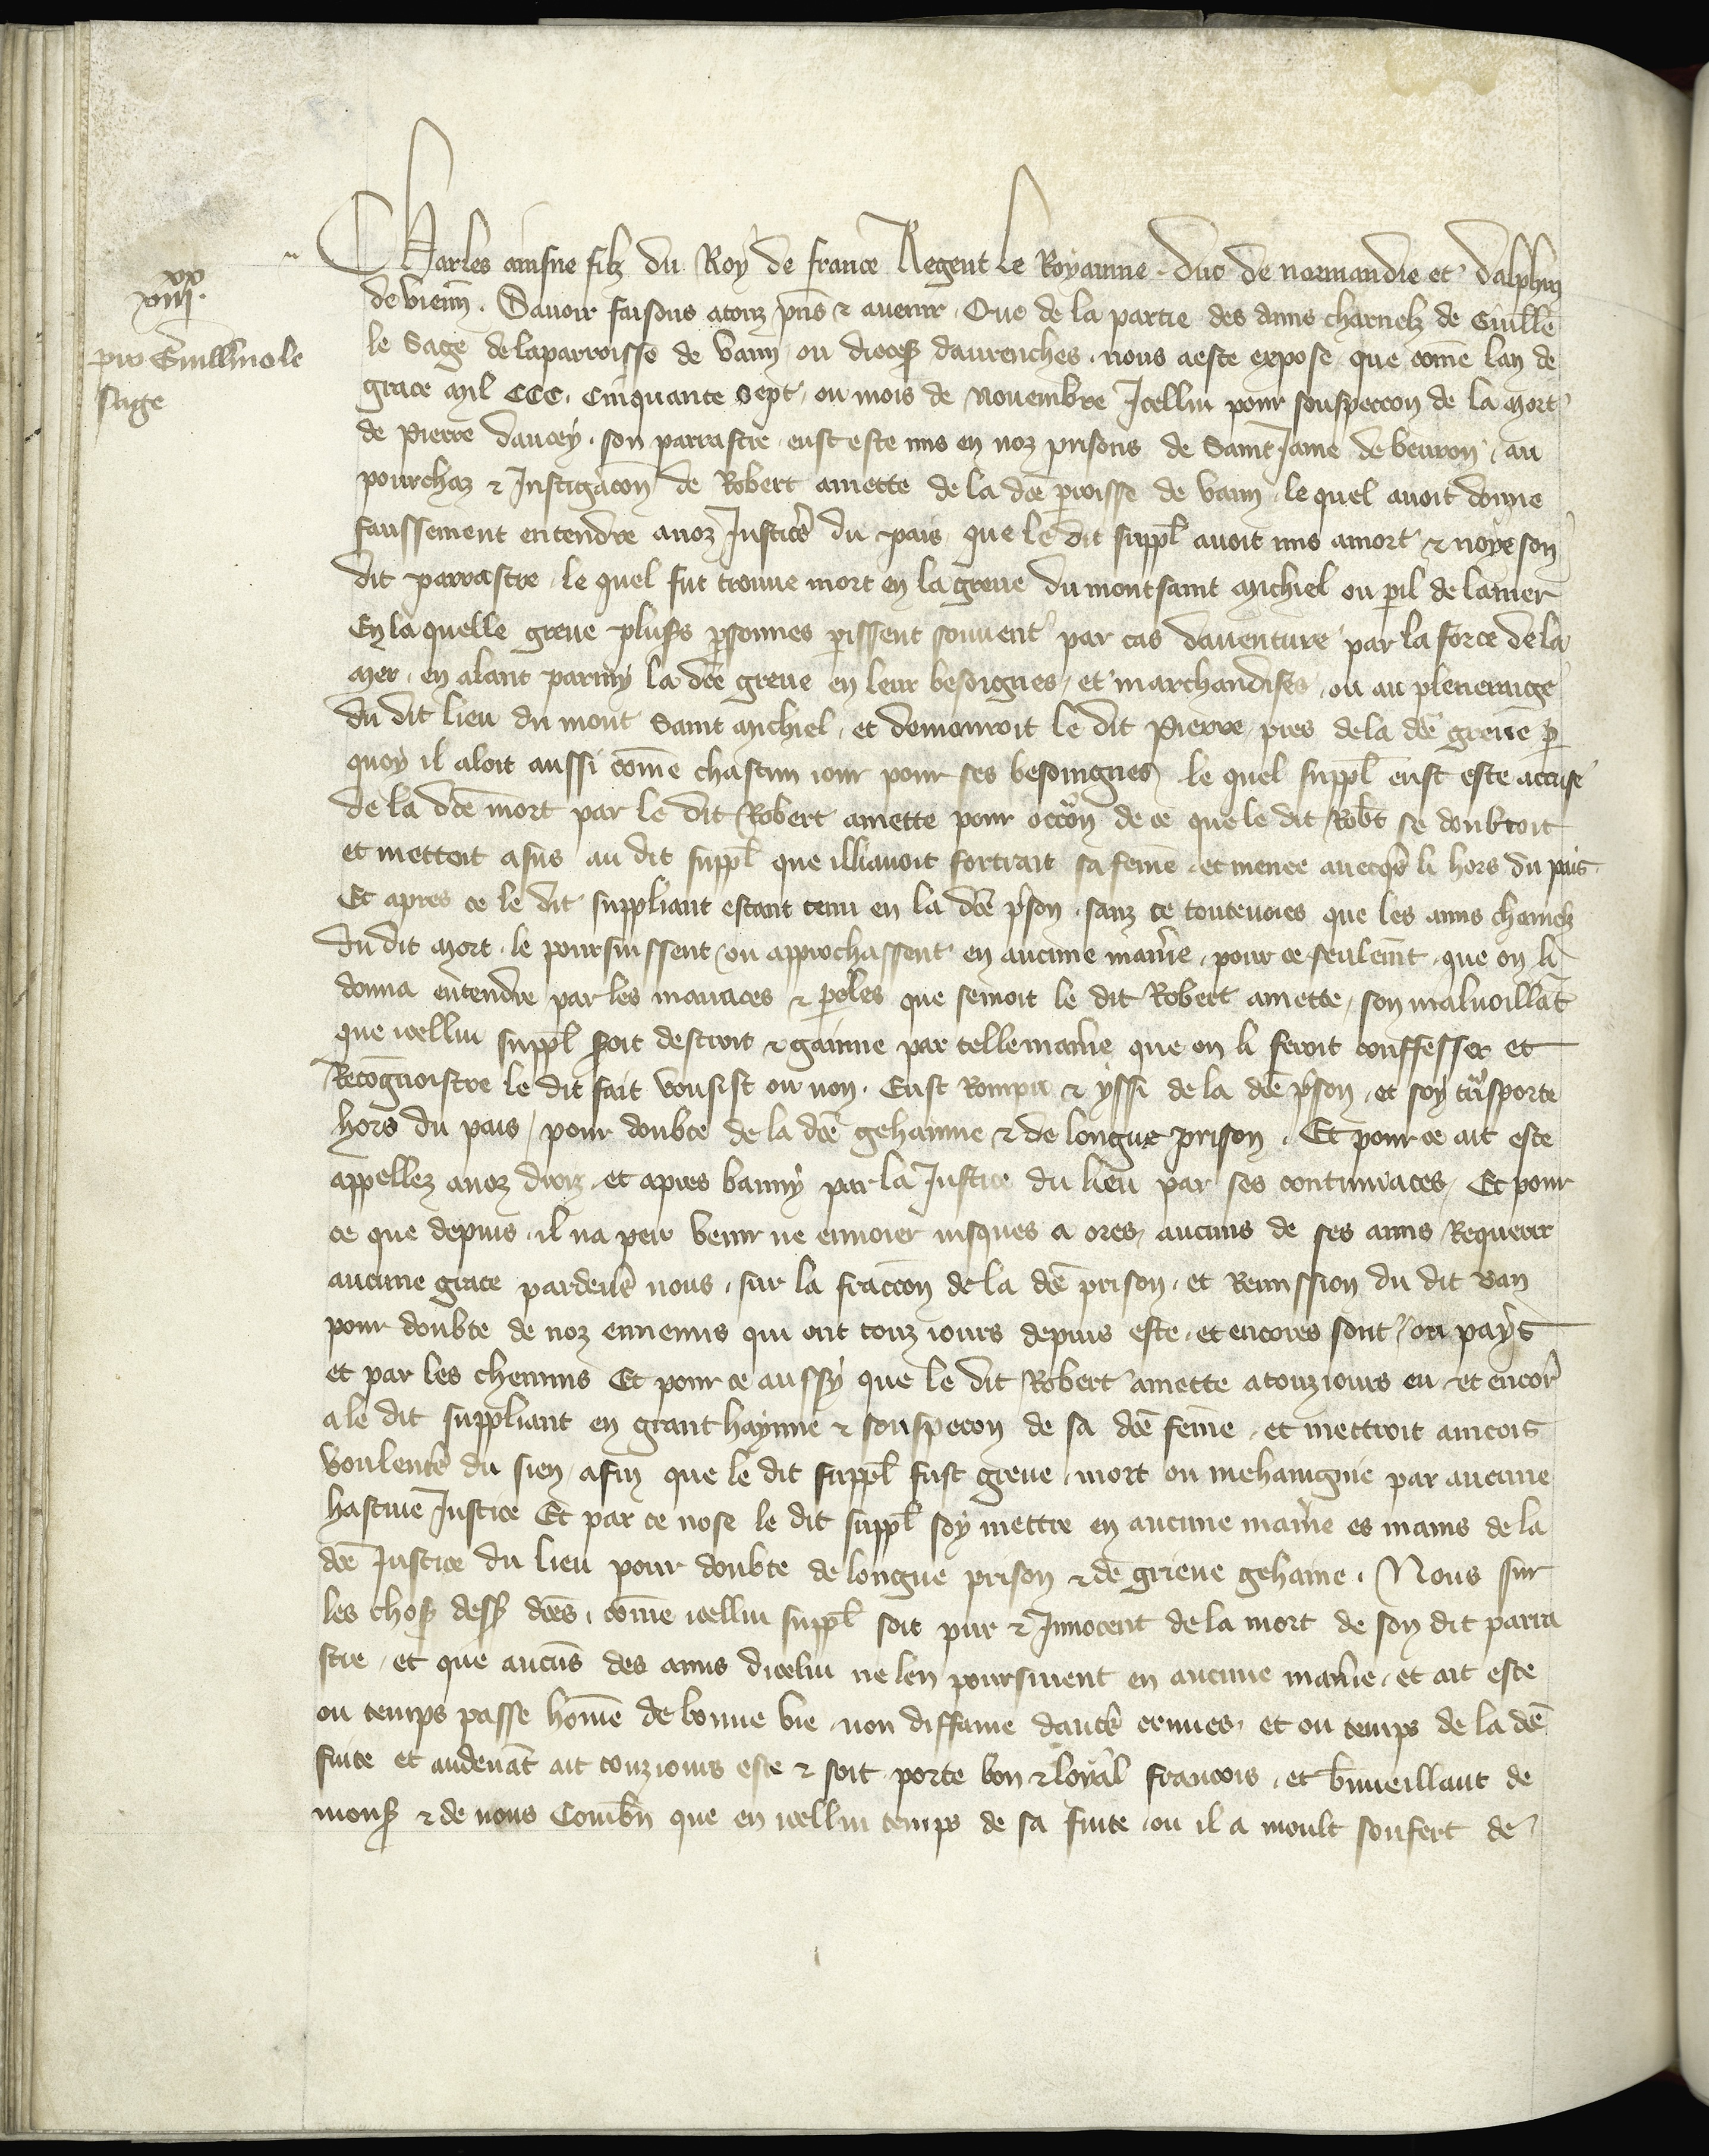 xx
xiiii.
pro Guillmo le
Sage
Charles ainsne filz du Roy de france Regent le Royaume duc de normandie et dalphin
de vienn̄. Savoir faisons atouz pn̄s ⁊ avenir Que de la partie des amis charnelz de Guill̄e
le Sage delaparroisse de Vain ou dioces̄ davrenches nous aeste expose que com̄e lan de
grace mil CCC. Cinquante Sept ou mois de Novembre Icellui pour souspeccon de la mort
de Pierre daucey son parrastre eust este mis en noz prisons de Saint Jame de beuron au
pourchaz ⁊ Instigacōn de Robert amette de la dc̄e p̄roisse de Vain le quel avoit donne
faussement entendre anoz Justices̄ du pais que le dit suppl̄ avoit mis amort ⁊ noye son
dit parrastre le quel fut trouve mort en la greve du mont saint Michiel ou p̄il de lamer
En la quelle greve plus̄s p̄sonnes p̄issent souvent par cas daventure par la force de la
mer en alant parmy la dc̄e greve en leur besoignes et marchandises ou au pelerinage
du dit lieu du mont Saint Michiel et demouroit le dit Pierre pres dela dc̄e greve p̄
quoy il aloit aussi com̄e chascun iour pour ses besoingnes le quel suppl̄ eust este accuse
de la dc̄e mort par le dit Robert amette pour occōn de ce que le dit Rob̄t se doubtoit
et mettoit asus au dit suppl̄ que illiavoit fortrait sa fem̄e et menee avecqs̄ li hors du pais
Et apres ce le dit suppliant estant tenu en la dc̄e p̄son sanz ce toutevoies que les amis charnelz
du dit mort le poursuissent ou approchassent en aucune manīe pour ce seulem̄t que on li
donna entendre par les menaces ⁊ p̄oles que semoit le dit Robert amette son malvoillāt
que icellui suppl̄ seroit destroit ⁊ gainne par telle manīe que on li feroit confesser et
Recognoistre le dit fait vousist ou non. Eust Rompu ⁊ yssi de la dc̄e p̄son et soy tr̄sporte
hors du pais pour doubte de la dc̄e gehainne ⁊ de longue prison. Et pour ce ait este
appellez anoz droiz et apres banny par la Justice du lieu par ses contumaces Et pour
ce que depuis il na peu venir ne envoier iusques a ores aucuns de ses amis Requerir
aucune grace pardevs̄ nous sur la fraccōn de la dc̄e prison et Remission du dit ban
pour doubte de noz ennemis qui ont touz iours depuis este et encores sont ou pays
et par les chemins Et pour ce aussy que le dit Robert amette atouziours eu et encor̄
a le dit suppliant en grant haynne ⁊ souspecon de sa dc̄e fem̄e et mettroit aincois
voulentrs̄ du sien afin que le dit suppl̄ fust greve mort ou mehaignie par aucune
hastive Justice Et par ce nose le dit suppl̄ soy mettre en aucune manīe es mains de la
dc̄e Justice du lieu pour doubte de longue prison ⁊ de grieve gehaine. Nous sur
les chos̄ dess̄ dc̄es com̄e icellui suppl̄ soit pur ⁊ Innocent de la mort de son dit parra
stre et que aucūs des amis dicelui ne len poursuient en aucune manīe et ait este
ou temps passe hom̄e de bonne vie non diffame dautrs̄ crimes et ou temps de la dc̄e
fuite et audevāt ait touziours este ⁊ soit porte bon ⁊ loyal francois et b̄nveillant de
mons̄ ⁊ de nous Combn̄ que en icellui temps de sa fuite ou il a moult soufert de